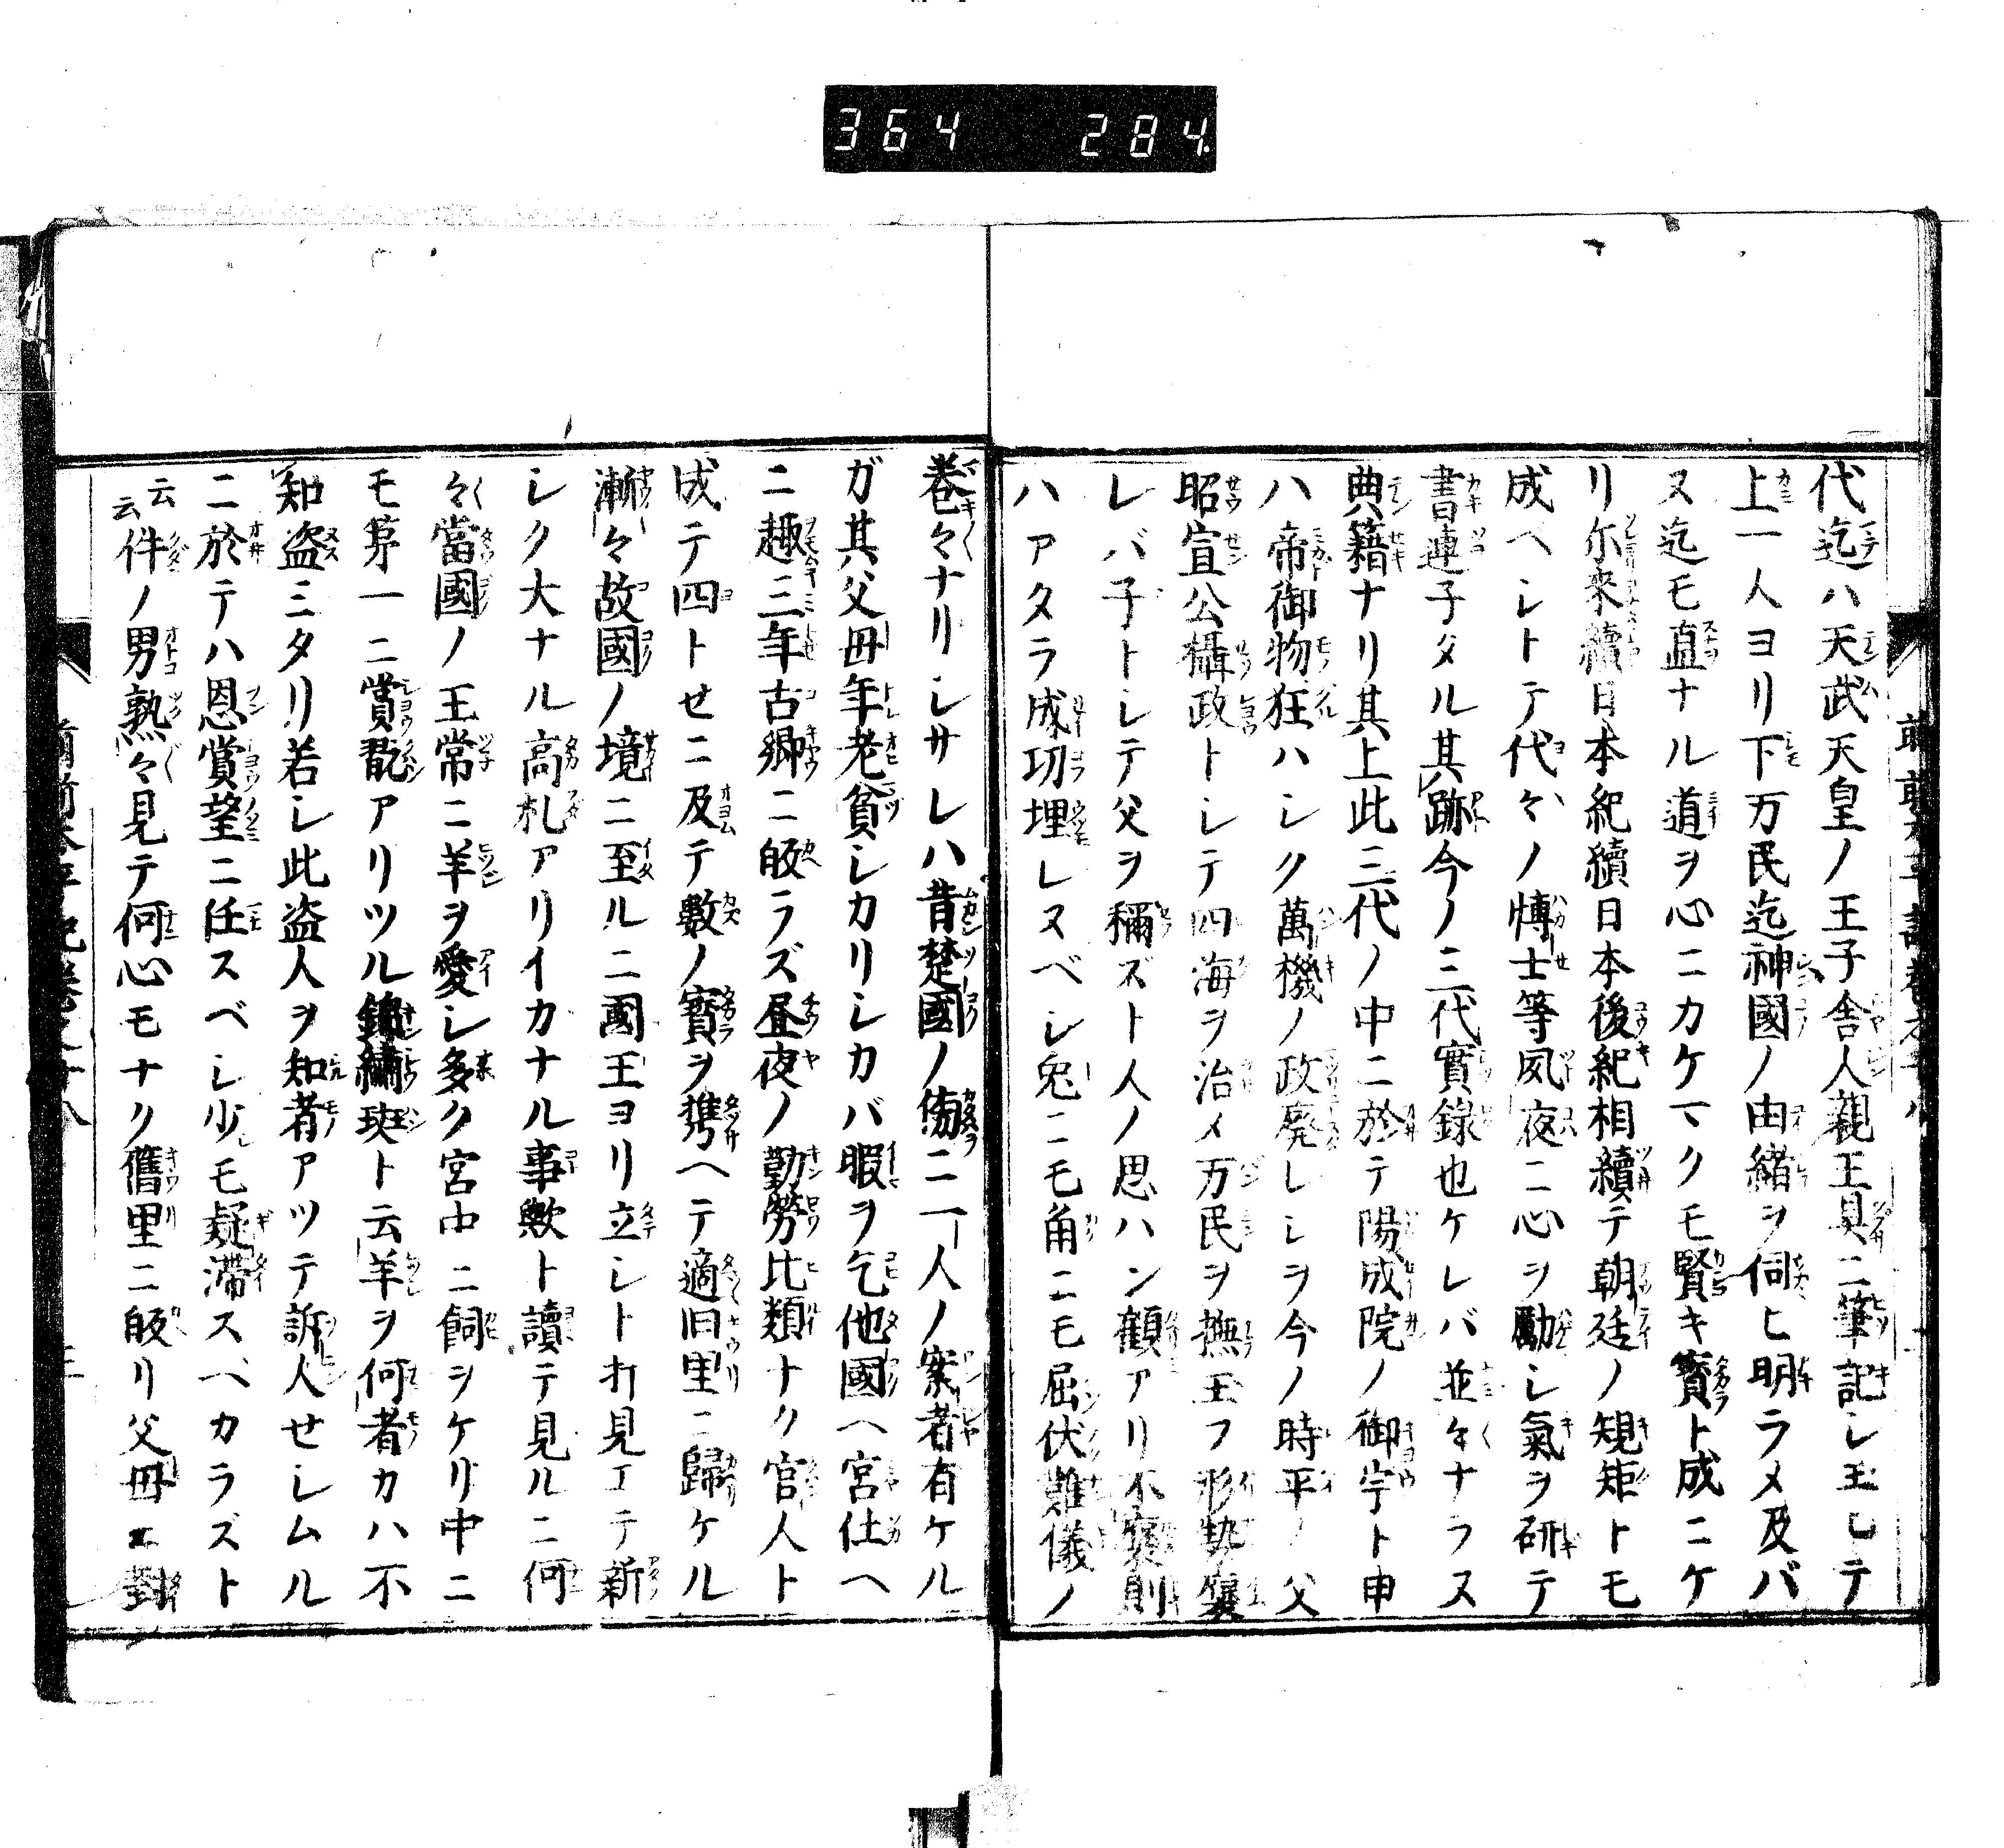 364 284
代迄ハ天武天皇ノ王子舎人親王具ニ筆記シ玉ヒテ
上一人ヨリ下万民迄神國ノ由緒ヲ伺ヒ明ラメ及バ
ヌ迄モ直ナル道ヲ心ニカケマクモ賢キ寳ト成ニケ
リ尓来續日本紀續日本後紀相續テ朝廷ノ規矩トモ
成ヘシトテ代々ノ博士等夙夜ニ心ヲ勵シ氣ヲ研テ
書連子タル其跡今ノ三代實録也ケレバ並々ナラヌ
典籍ナリ其上此三代ノ中ニ於テ陽成院ノ御宇ト申
ハ帝御物狂ハシク萬機ノ政廃レシヲ今ノ時平ノ父
昭宣公攝政トシテ四海ヲ治メ万民ヲ撫玉フ形勢
レバ子トシテ父ヲ稱ズト人ノ思ハン顧アリ不褒則
ハアタラ成功埋レヌベシ兎ニモ角ニモ屈伏難儀ノ
巻々ナリシサレハ昔楚國ノ傍ニ一人ノ案者有ケル
ガ其父母年老貧シカリシカバ暇ヲ乞他國ヘ宮仕ヘ
ニ趣三年古郷ニ皈ラズ昼夜ノ勤労比類ナク官人ト
成テ四トセニ及テ數ノ寳ヲ携ヘテ適旧里ニ歸ケル
漸々故國ノ境ニ至ルニ國王ヨリ立シト打見エテ新
シク大ナル高札アリイカナル事歟ト讀テ見ルニ何
々當國ノ王常ニ羊ヲ愛シ多ク宮中ニ飼ヲケリ中ニ
モ苐一ニ賞翫アリツル錦繍斑ト云羊ヲ何者カハ不
知盗ミタリ若シ此盗人ヲ知者アツテ訴人せシムル
ニ於テハ恩賞望ニ任スベシ少モ疑滞スベカラズト
云云件ノ男熟々見テ何心モナク舊里ニ皈リ父母ニ對